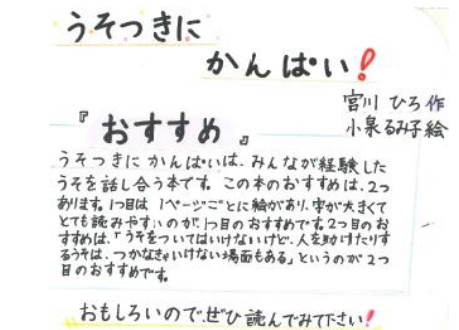 うそつきに
かんぱい!
宮川 ひろ 作
小泉るみ子 絵
『おすすめ』
うそつきにかんぱいは、みんなが経験した
うそを話し合う本です。この本のおすすめは、2つ
あります。1つ目は 1ページごとに絵があり、字が大きくて
とても読みやすいのが、1つ目のおすすめです。2つ目のお
すすめは、「うそをついてはいけないけど、人を助けたりす
るうそは、つかなきゃいけない場面もある」というのが2つ
目のおすすめです。
おもしろいので、ぜひ読んでみて下さい!